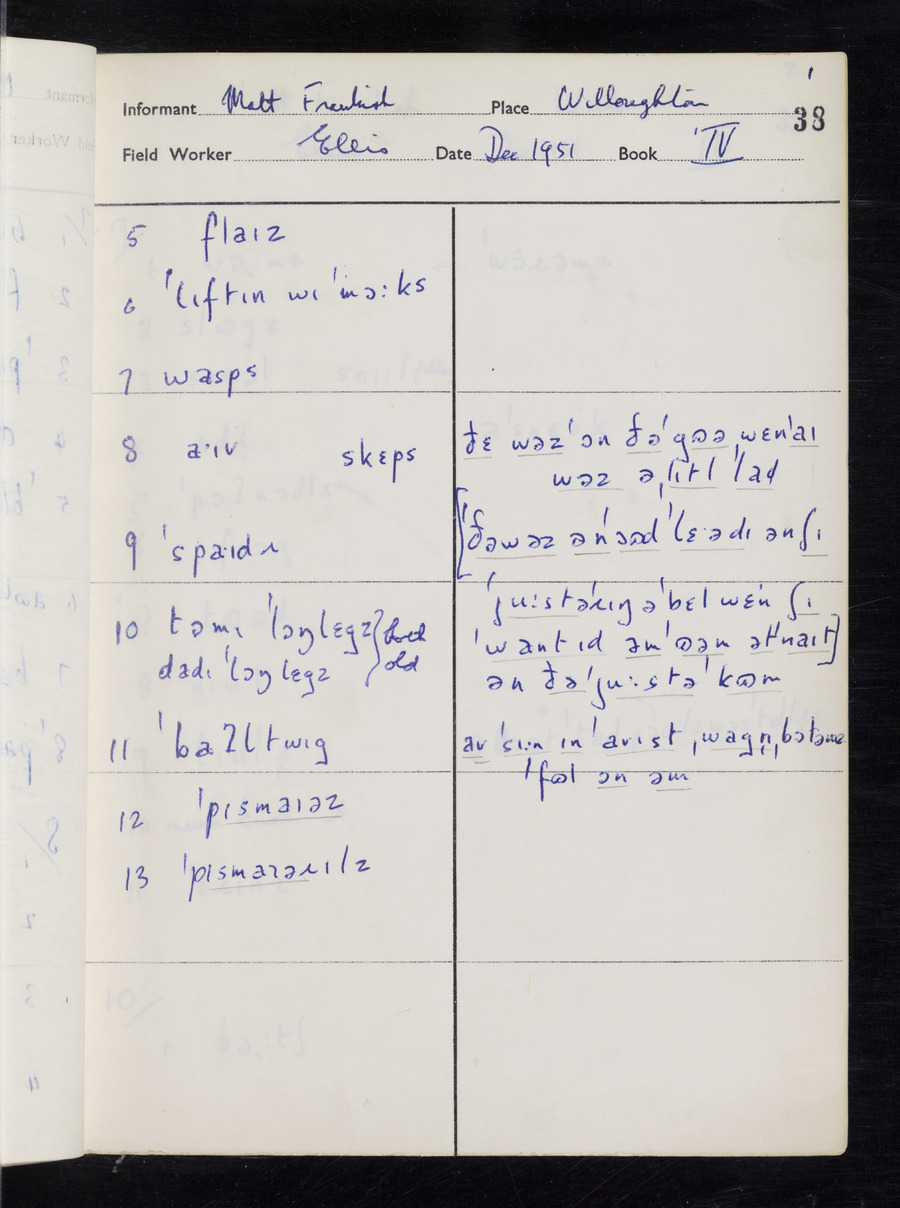 Informant Matt Frankish Place Willoughton
38
Field Worker Ellis Date Dec 1951 Book IV
5 flaɪz
6 ˈlɪftɪn wɪˈmɔːks
7 wasps
8 aˑɪv skeps
9 ˈspaˑɪdə
10 tɒmɪ ˈlɒŋlɛgz } both
dadɪ ˈlɒŋlɛgz } old
11 ˈbaʔltwɪg
12 ˈpɪsmaɪəz
13 ˈpɪsmaɪəɹɪlz
ðɛ wəz ˈɒn ðə ˈɡʊə wɛnˈaɪ
wəz ə ˌlɪtl ˈlad
[ˈðəwəz ənˈɔʊd ˈlɛːədɪ ən ʃɪ
ˈjuːstəɹɪŋ əˈbɛl wɛn ʃɪ
ˈwantɪd əmˈʊəm ətˈnaɪt]
ən ðəˈjuːstəˈkʊm
av ˈsiːn ɪn ˈavɪst ˌwagn̩
ˈfʊl ɒn əm